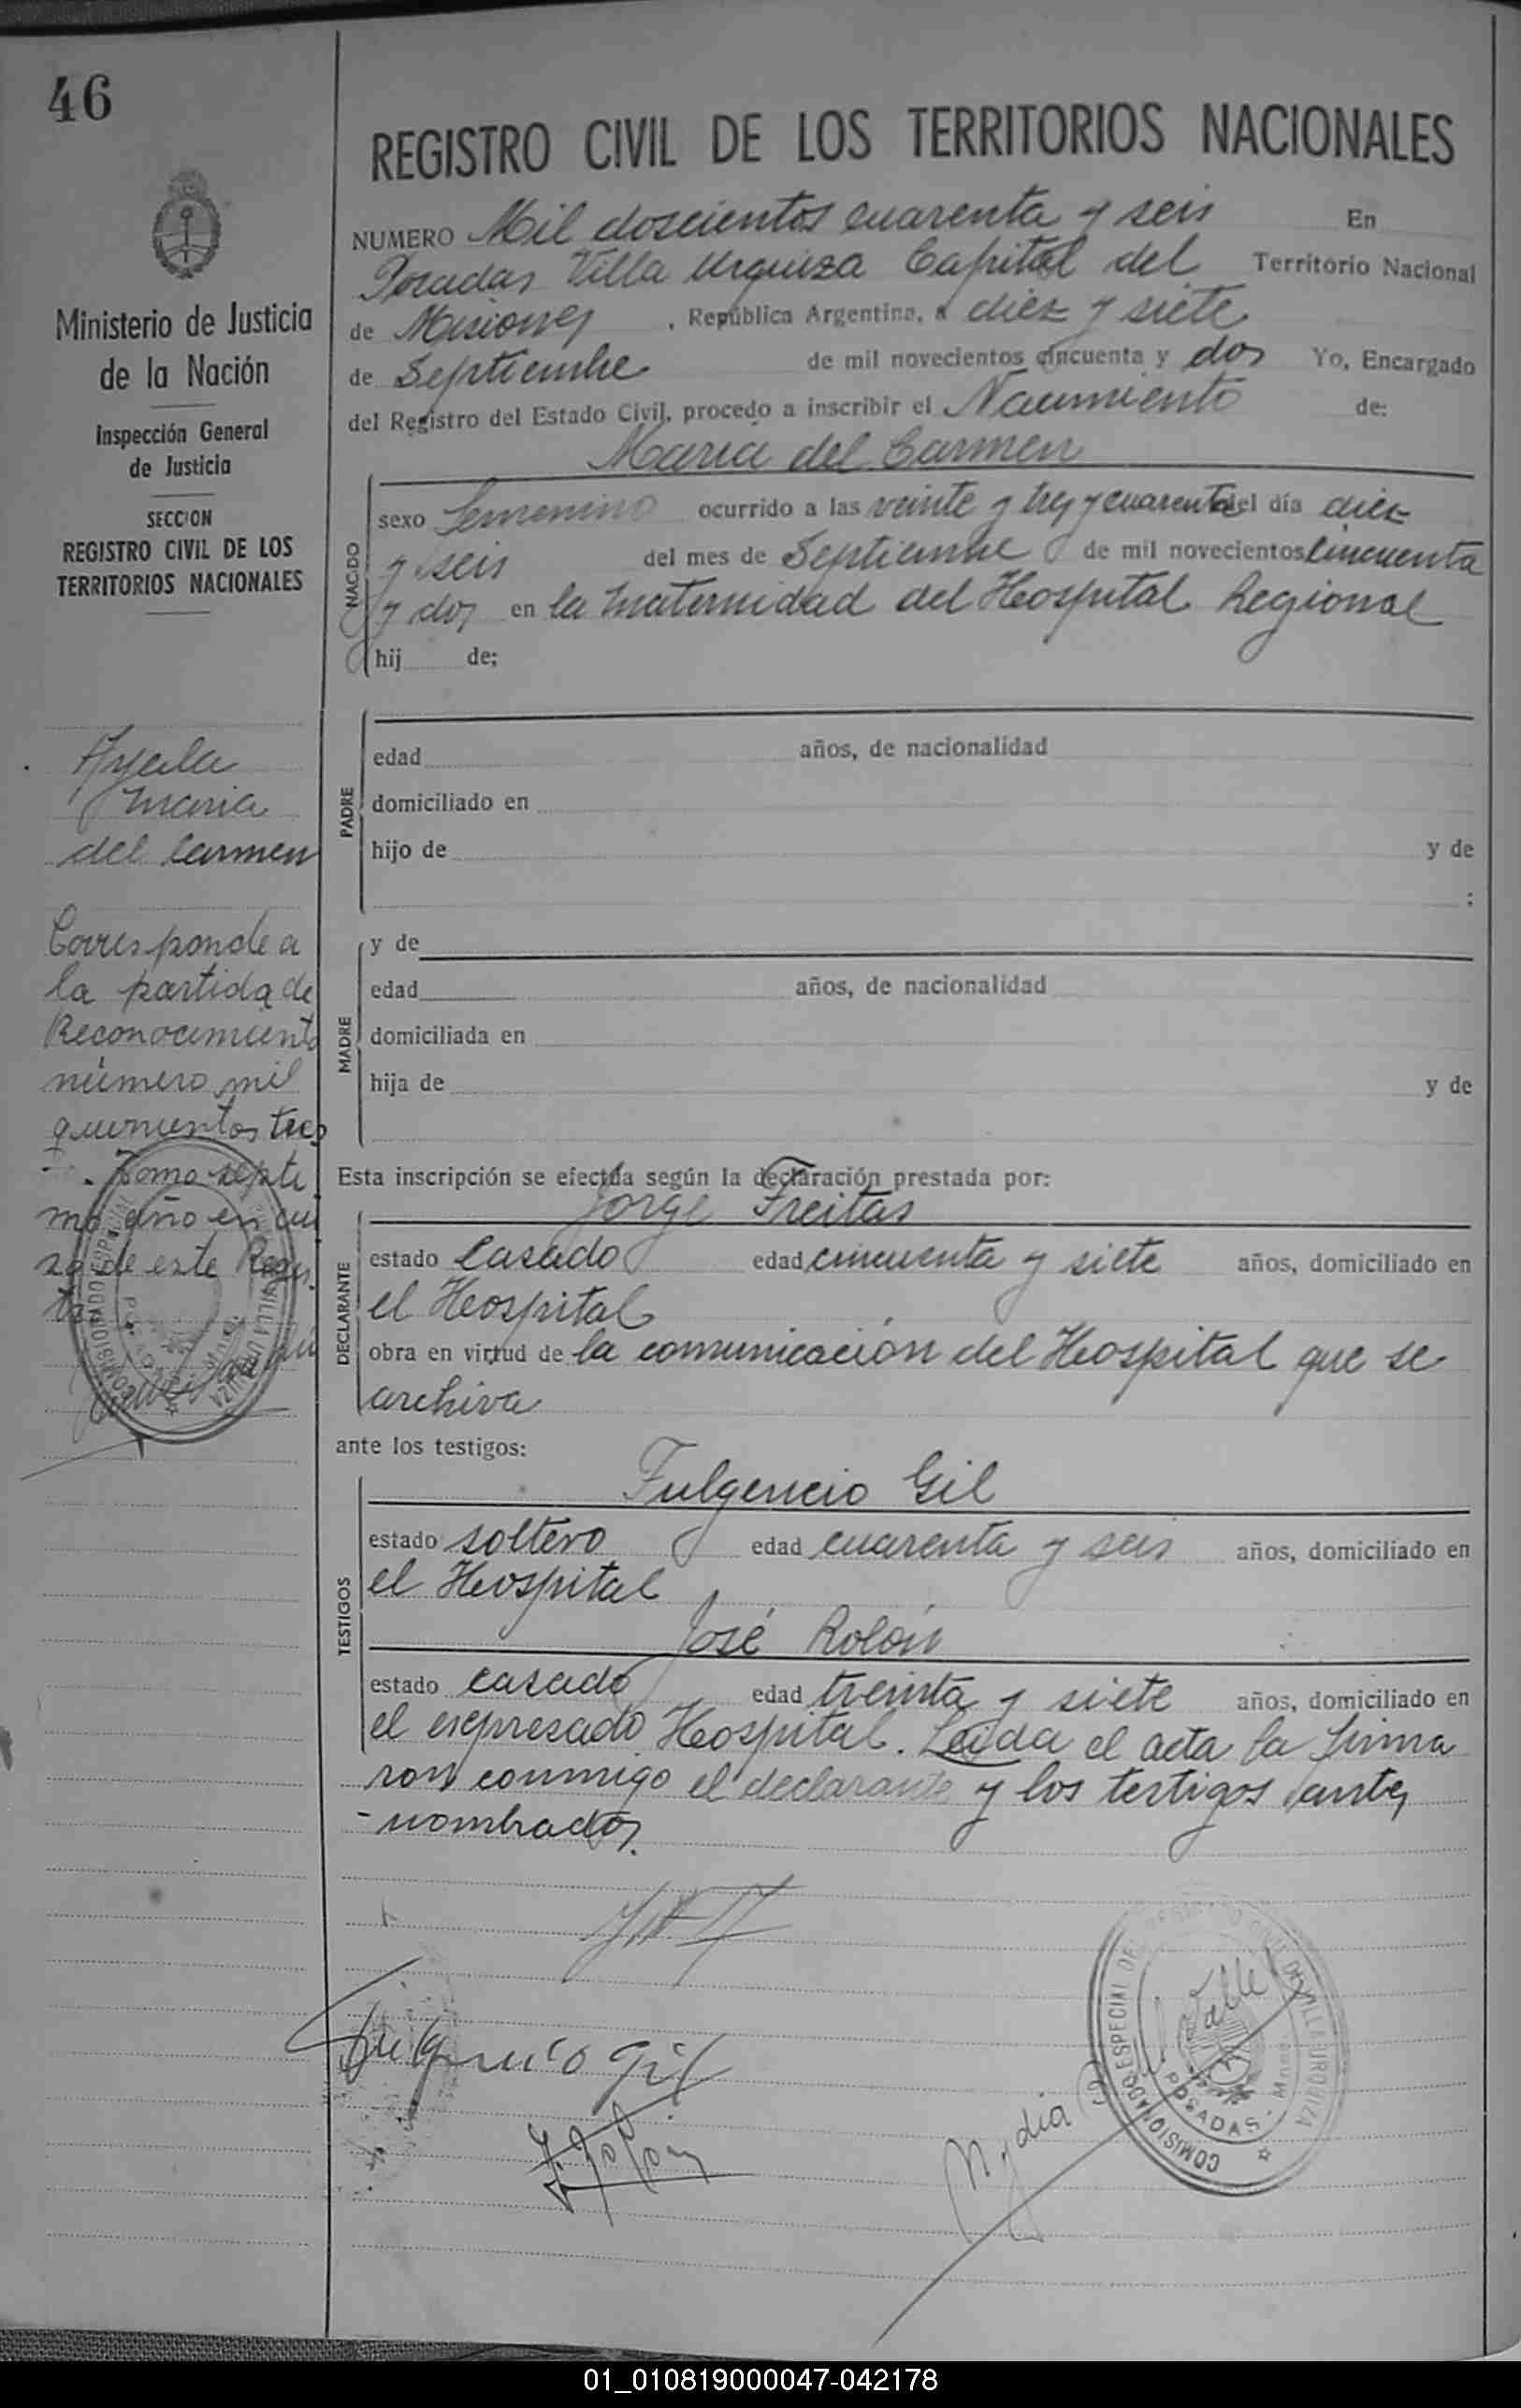 46
Ministerio de Justicia
de la Nación
Inspección General
de Justicia
SECCION
REGISTRO CIVIL DE LOS
TERRITORIOS NACIONALES
Ayala
Maria
del Carmen
Corresponde a
la partida de
Reconocimiento
número mil
quinientos tres
Tomo septi
mo año en cur
so de este Regis
tro
REGISTRO CIVIL DE LOS TERRITORIOS NACIONALES
NUMERO Mil doscientos cuarenta y seis En
Posadas Villa Urquiza Capital del Territorio Nacional
de Misiones, República Argentina, a diez y siete
de Septiembre de mil novecientos cincuenta y dos Yo, Encargado
del Registro del Estado Civil, procedo a inscribir el Nacimiento de:
Maria del Carmen
NACIDO
sexo Femenino ocurrido a las veinte y tres y cuarenta del día diez
y seis del mes de Septiembre de mil novecientos cincuenta
y dos en la Maternidad del Hospital Regional
hij de;
PADRE
edad años, de nacionalidad
domiciliado en
hijo de y de
;
MADRE
y de
edad años, de nacionalidad
domiciliada en
hija de y de
Esta inscripción se efectúa según la declaración prestada por:
Jorge Freitas
DECLARANTE
estado Casado edad cincuenta y siete años, domiciliado en
el Hospital
obra en virtud de la comunicación del Hospital que se
archiva
ante los testigos:
Fulgencio Gil
TESTIGOS
estado soltero edad cuarenta y seis años, domiciliado en
el Hospital
José Rolón
estado casado edad treinta y siete años, domiciliado en
el expresado Hospital. Leida el acta la firma
ron conmigo el declarante y los testigos antes
-nombrados.
Fulgencio Gil
J. Rolón
Nydia Valle
COMISIONADO ESPECIAL DEL REGISTRO CIVIL DE VILLA URQUIZA
POSADAS - Mnes.
01_010819000047-042178